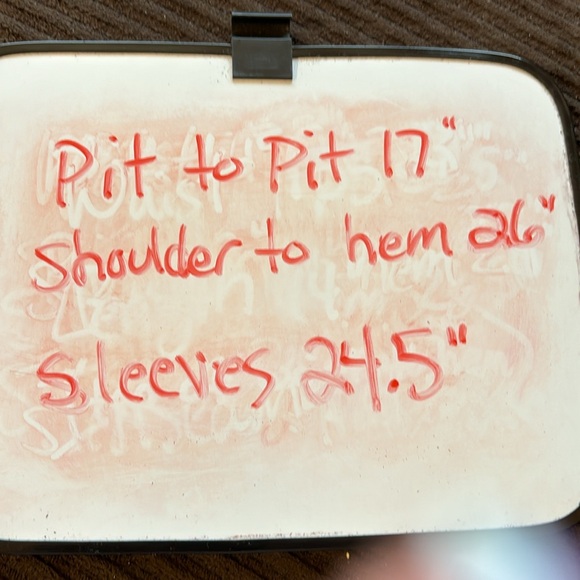 Pit to Pit 17"
Shoulder to hem 26"
Sleeves 24.5"